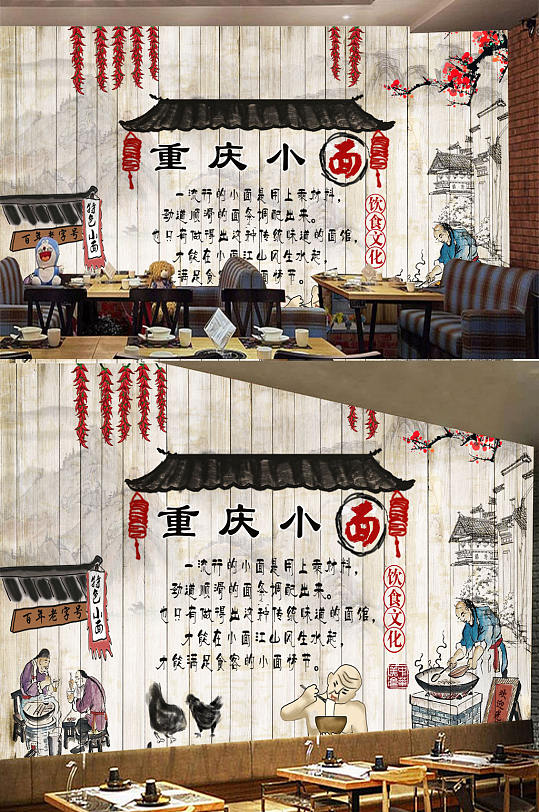 重庆小面
一流行的小面是用上乘材料，
劲道顺滑的面条调配出来。
也只有做得出这种传统味道的面馆，
才能在小面江山风生水起，
满足食 面情节。
饮食文化
特色小面
百年老字号
重庆小面
一流行的小面是用上乘材料，
劲道顺滑的面条调配出来。
也只有做得出这种传统味道的面馆，
才能在小面江山风生水起，
才能满足食客的小面情节。
饮食文化
特色小面
百年老字号
欢迎光